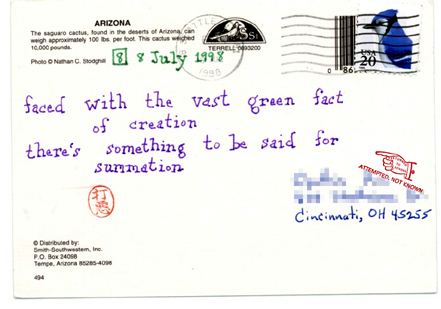 ARIZONA
The saguaro cactus, found in the deserts of Arizona, can
weigh approximately 100 lbs. per foot. This cactus weighed
10,000 pounds.
Photo © Nathan C. Stodghill
8 8 July 1998
TERRELL
1998
USA
20
0 86
faced with the vast green fact
of creation
there's something to be said for
summation
ATTEMPTED, NOT KNOWN
Cincinnati, OH 45255
© Distributed by:
Smith-Southwestern, Inc.
P.O. Box 24098
Tempe, Arizona 85285-4098
494